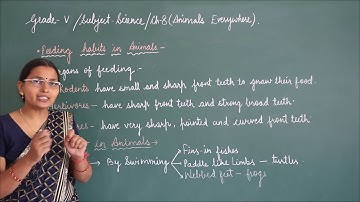 Grade - V / Subject - Science / Ch-8 (Animals Everywhere).
• Feeding habits in Animals -
gans of feeding -
Rodents have small and sharp front teeth to gnaw their food.
rbivores - have sharp front teeth and strong broad teeth.
res - have very sharp, pointed and curved front teeth.
in Animals →
By Swimming
Fins - in fishes
Paddle like limbs - turtles
Webbed feet - frogs